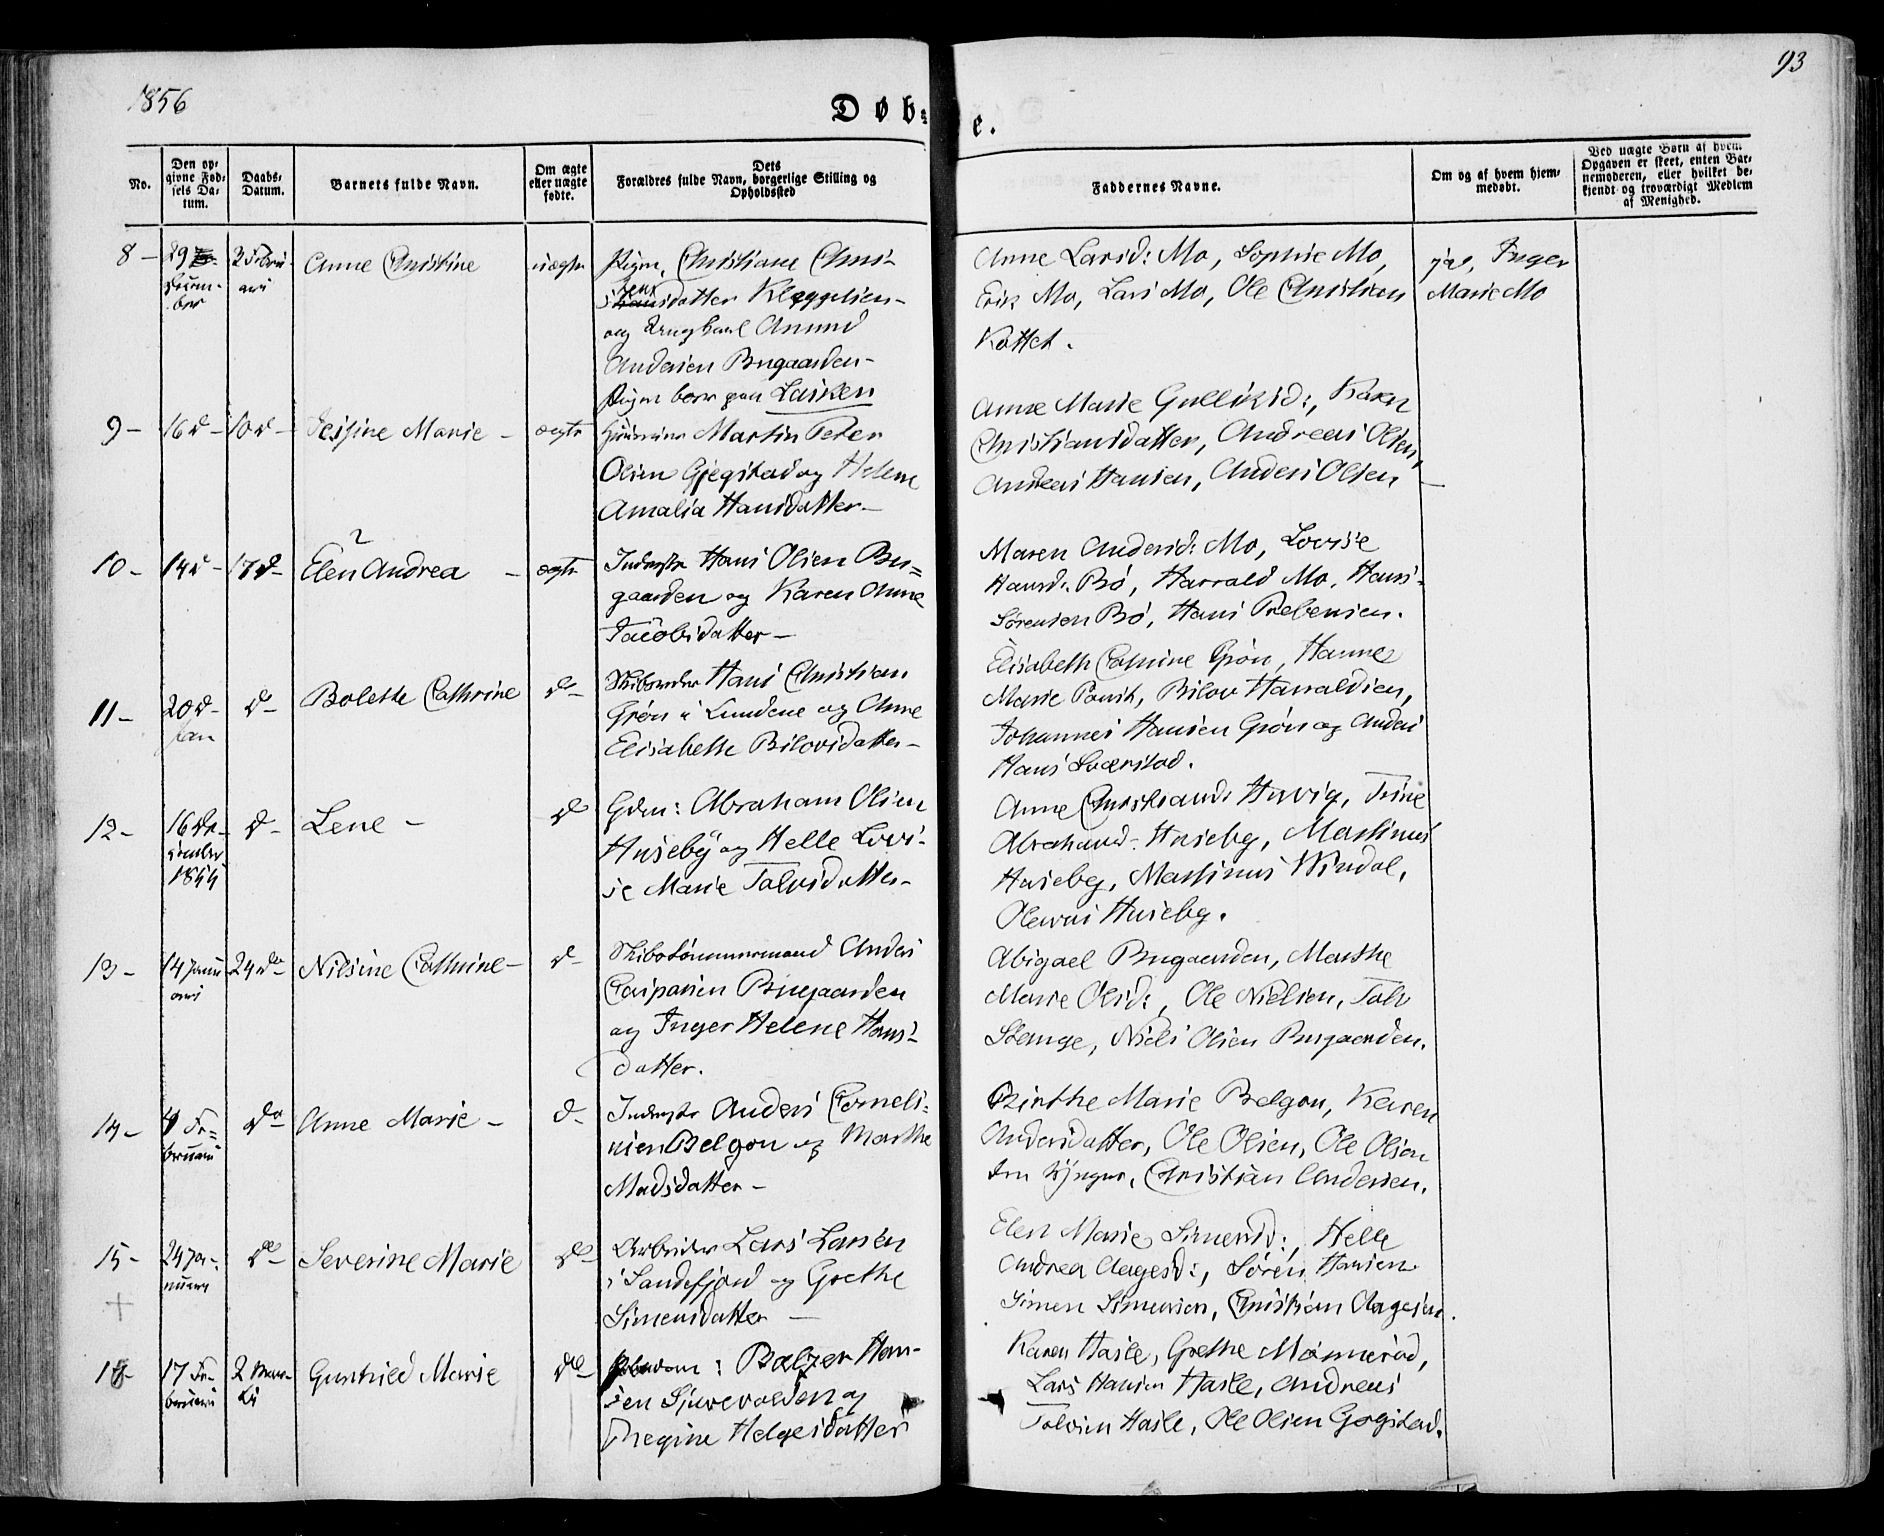 1856
93
Døbte.
No.
Den opgivne Fødsels Datum.
Daabs-Datum.
Barnets fulde Navn.
Om ægte eller uægte fødte.
Dets Forældres fulde Navn, borgerlige Stilling og Opholdssted
Faddernes Navne.
Om og af hvem hjemmedøbt.
Ved uægte Børn af hvem Opgaven er skeet, enten Barnemoderen, eller hvilket bekjendt og troværdigt Medlem af Menighed.
8 - 29 December
Anne Christine
uægte
Pigen, Christiane Christiansdatter
og Ungkarl Amund
Andersen Bugaarden -
Pigen boer paa Lasken
Anne Larsd: Mo, Sophie Mo,
Erik Mo, Lars Mo, Ole Christian
Kattet.
ja, Inger
Marie Mo
9 - 16 d - 10 d -
Jessine Marie -
ægte
Huusmand Martin Peter
Olsen Gjegstad og Helene
Amalia Hansdatter -
Anne Marie Gulliksd:, Karen
Christiansdatter, Andreas Olsen,
Andreas Hansen, Anders Olsen -
10 - 14 d - 17 d -
Elen Andrea -
ægte
Inderste Hans Olsen Bu=
gaarden og Karen Anne
Jacobsdatter -
Maren Andersd: Mo, Lovise
Hansd: Bö, Harrald Mo, Hans
Sørensen Bö, Hans Prebensen.
11 - 20 d - Jan
d -
Bolette Cathrine
do -
Skibsreder Hans Christian
Grøn i Lundene og Anne
Elisabeth Bilovsdatter -
Elisabeth Cathrine Grøn, Hanne
Marie Bilov Harraldsen,
Johannes Hansen Grøn og Anders
Hans Sværstad.
12 - 16 December
1855
d -
Lene -
d
Gdm: Abraham Olsen
Huseby og Helle Lovi-
se Marie Talvsdatter -
Anne Christiansd: Hervig, Trine
Abrahamsd: Huseby, Martinus
Huseby, Martinus Vindal,
Olavus Huseby.
13 - 14 Januari
24 do -
Nilsine Cathrine -
d -
Skibstømmermand Anders
Caspersen Bugaarden
og Inger Helene Hans-
datter.
Abigael Bugaarden, Marthe
Marie Olsd:, Ole Nielsen, Talv
Stange, Niels Olsen Bugaarden.
14 - 4 Februari
do -
Anne Marie -
d -
Inderste Anders Corneli=
usen Belgou og Marthe
Madsdatter -
Birthe Marie Belgou, Karen
Andersdatter, Ole Olsen, Ole Olsen
den Yngre, Christian Andersen.
15 - 24 Januari
+
do -
Severine Marie
do -
Arbeider Lars Larsen
i Sandefjord og Grethe
Simensdatter -
Elen Marie Simensd:, Helle
Andrea Aagesd:, Søren Hansen
Simen Simensen, Christian Aagesen.
16 - 17 Februari
2 Marti
Gunhild Marie
do
Balzer Han-
sen Sjuevolden og
Thegine Helgesdatter
Karen Hasle, Grethe Mønnerød,
Lars Hansen Hasle, Andreas
Talvsen Hasle, Ole Olsen Gogstad.